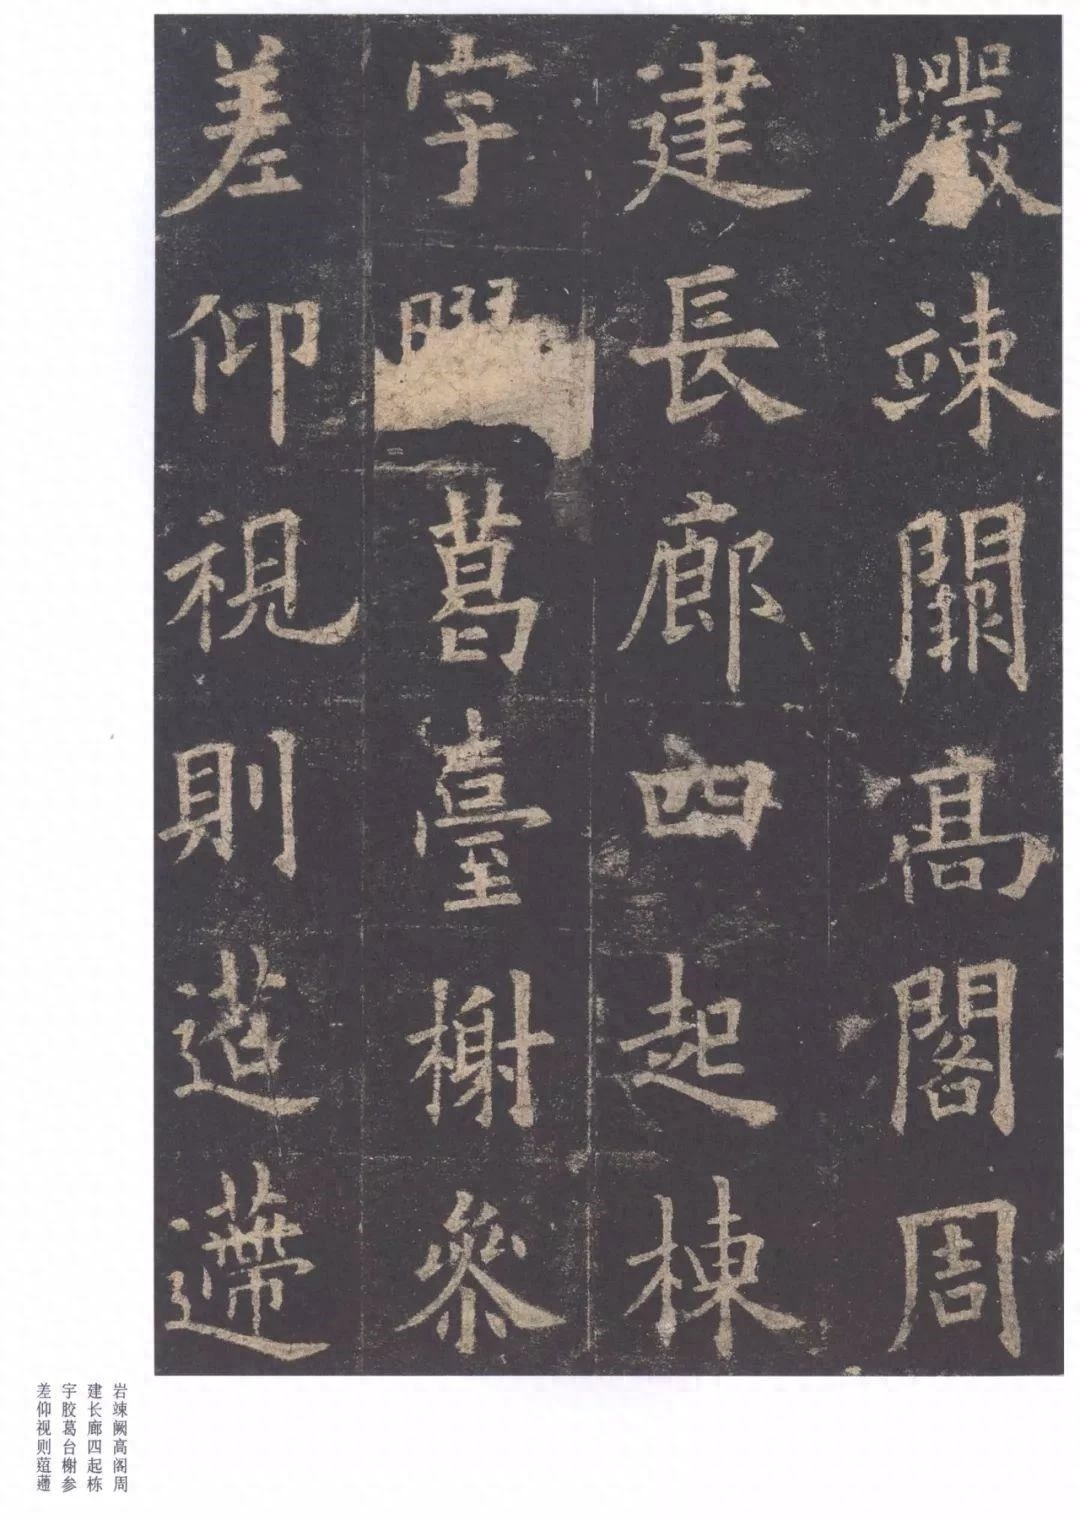 巖竦闕高閣周
建長廊四起棟
宇葛臺榭參
差仰視則
岩竦阙高阁周
建长廊四起栋
宇胶葛台榭参
差仰视则